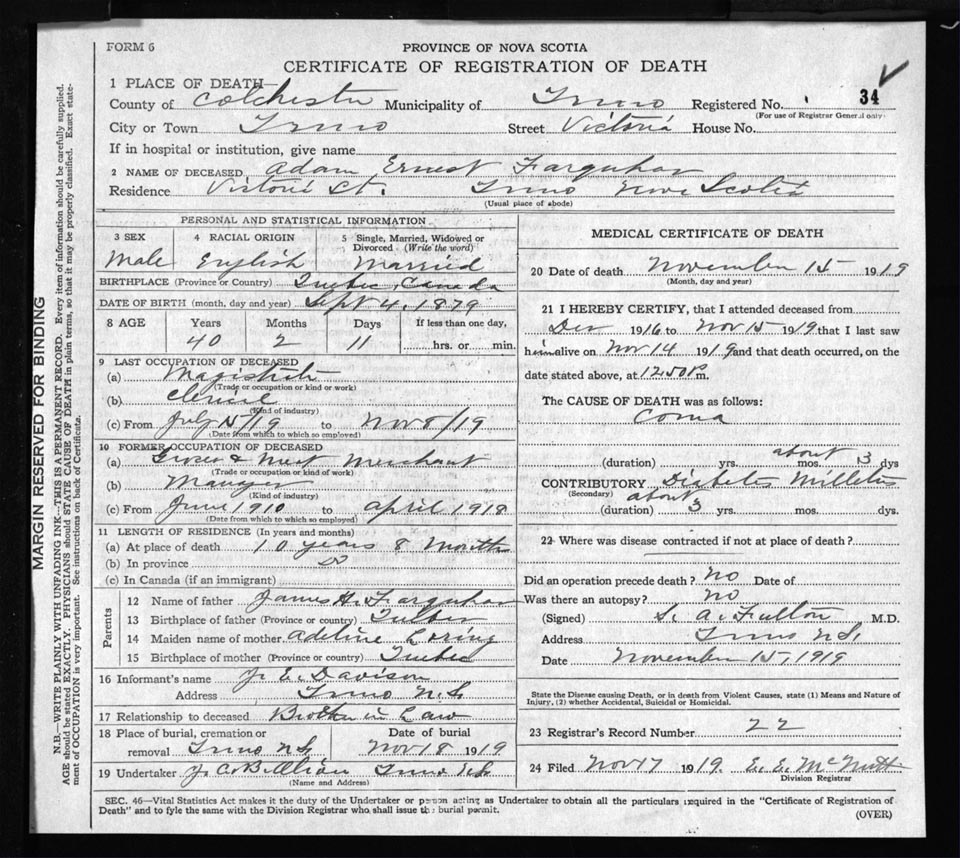 FORM 6
PROVINCE OF NOVA SCOTIA
CERTIFICATE OF REGISTRATION OF DEATH
1 PLACE OF DEATH
County of Colchester Municipality of Truro Registered No. 34
(For use of Registrar General only)
City or Town Truro Street Victoria House No.
If in hospital or institution, give name
2 NAME OF DECEASED Adam Ernest Farquhar
Residence Victoria St. Truro Nova Scotia
(Usual place of abode)
PERSONAL AND STATISTICAL INFORMATION
3 SEX 4 RACIAL ORIGIN 5 Single, Married, Widowed or
Divorced (Write the word)
Male English Married
BIRTHPLACE (Province or Country) Quebec, Canada
DATE OF BIRTH (month, day and year) Sept 4, 1879
8 AGE Years Months Days If less than one day,
40 2 11 hrs. or min.
9 LAST OCCUPATION OF DECEASED
(a) Magistrate
(Trade or occupation or kind or work)
(b) Clerical
(Kind of industry)
(c) From July 15/19 to Nov 8/19
(Date from which to which so employed)
10 FORMER OCCUPATION OF DECEASED
(a) Grocer & Meat Merchant
(Trade or occupation or kind of work)
(b) Manager
(Kind of industry)
(c) From June 1910 to April 1918
(Date from which to which so employed)
11 LENGTH OF RESIDENCE (In years and months)
(a) At place of death 10 years 8 Months
(b) In province Do
(c) In Canada (if an immigrant)
Parents
12 Name of father James H. Farquhar
13 Birthplace of father (Province or country) Quebec
14 Maiden name of mother Adeline Loring
15 Birthplace of mother (Province or country) Quebec
16 Informant's name J. E. Davison
Address Truro N.S.
17 Relationship to deceased Brother in Law
18 Place of burial, cremation or Date of burial
removal Truro N.S. Nov 18 1919
19 Undertaker J. C. B. Truro N.S.
(Name and Address)
MEDICAL CERTIFICATE OF DEATH
20 Date of death November 15 1919
(Month, day and year)
21 I HEREBY CERTIFY, that I attended deceased from
Dec 1916 to Nov 15 1919 that I last saw
him alive on Nov 14 1919 and that death occurred, on the
date stated above, at 12.50 P m.
The CAUSE OF DEATH was as follows:
Coma
(duration) yrs. about mos. 3 dys
CONTRIBUTORY Diabetes Milletus
(Secondary) about
(duration) 3 yrs. mos. dys.
22 Where was disease contracted if not at place of death?
Did an operation precede death? no Date of
Was there an autopsy? no
(Signed) S. A. Fulton M.D.
Address Truro N.S.
Date November 15, 1919
State the Disease causing Death, or in death from Violent Causes, state (1) Means and Nature of
Injury, (2) whether Accidental, Suicidal or Homicidal.
23 Registrar's Record Number 22
24 Filed Nov 17 1919. E. E. McNutt
Division Registrar
SEC. 46—Vital Statistics Act makes it the duty of the Undertaker or person acting as Undertaker to obtain all the particulars required in the "Certificate of Registration of
Death" and to fyle the same with the Division Registrar who shall issue the burial permit.
(OVER)
MARGIN RESERVED FOR BINDING
N.B.—WRITE PLAINLY WITH UNFADING INK—THIS IS A PERMANENT RECORD. Every item of information should be carefully supplied.
AGE should be stated EXACTLY. PHYSICIANS should STATE CAUSE OF DEATH in plain terms, so that it may be properly classified. Exact state-
ment of OCCUPATION is very important. See instructions on back of Certificate.